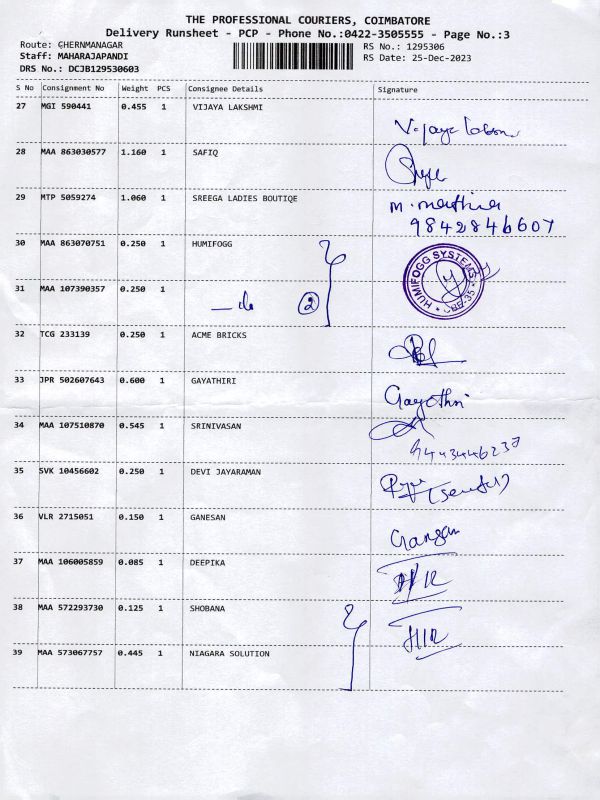 THE PROFESSIONAL COURIERS, COIMBATORE
Delivery Runsheet - PCP - Phone No.:0422-3505555 - Page No.:3
Route: CHERNMANAGAR
RS No.: 1295306
Staff: MAHARAJAPANDI
RS Date: 25-Dec-2023
DRS No.: DCJB129530603
S No Consignment No Weight PCS Consignee Details Signature
27 MGI 590441 0.455 1 VIJAYA LAKSHMI
28 MAA 863030577 1.160 1 SAFIQ
29 MTP 5059274 1.060 1 SREEGA LADIES BOUTIQE
9842846607
30 MAA 863070751 0.250 1 HUMIFOGG
HUMIFOGG SYSTEMS CBE-35
31 MAA 107390357 0.250 1
2
32 TCG 233139 0.250 1 ACME BRICKS
33 JPR 502607643 0.600 1 GAYATHIRI
Gayothri
34 MAA 107510870 0.545 1 SRINIVASAN
35 SVK 10456602 0.250 1 DEVI JAYARAMAN
36 VLR 2715051 0.150 1 GANESAN
37 MAA 106005859 0.085 1 DEEPIKA
38 MAA 572293730 0.125 1 SHOBANA
39 MAA 573067757 0.445 1 NIAGARA SOLUTION